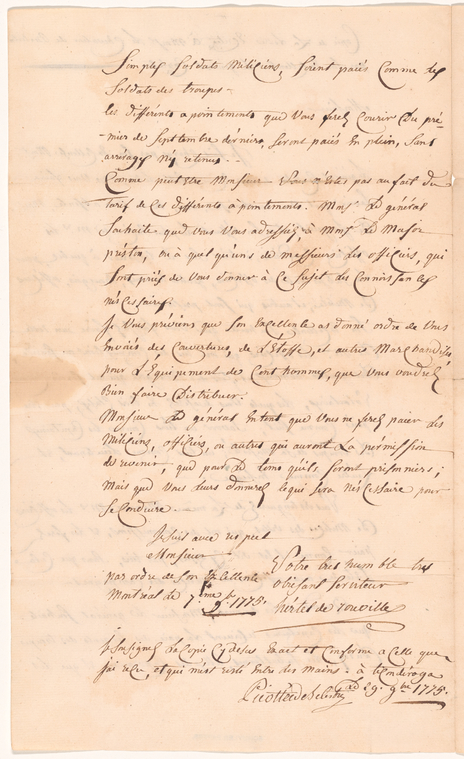 Simples soldats Miliciens, soient païés Comme les
soldats des troupes -
Les différents apointements que Vous ferez Courir Du pré-
mier de septembre dérnier, seront païés En plein, sans
arrérages Ny retenus. -
Comme peut être Monsieur Vous n'êtes pas au fait Du
Tarif de Ces différents apointements. Monsr Le général
Souhaite que Vous Vous adressiez à Monsr Le Major
préston, ou à quel qu'uns de messieurs Les officiers, qui
sont près de Vous donner à Ce sujet des Connoissances
nécessaires.
Je Vous préviens que son Excellence as donné ordre de Vous
Envoiés des Couvertures, de L'Etoffe, et autres Marchandises
pour L'Equipement de Cent hommes, que Vous voudrez
Bien faire Distribuer.
Monsieur Le général Entent que Vous ne ferez païer des
Miliciens, officiers, ou autres qui auront La pérmission
de revenir, que pour Le tems qu'ils seront prisonniers;
Mais que Vous Leurs donnerez Ce qui sera nécessaire pour
se Conduire.
Je suis avec respect
Monsieur
Votre tres humble tres
par ordre de son Excellence
obéisant serviteur
Montréal Le 7.me 9.bre 1775.
hértel de rouville
Je sousigné La Copie Cy desus Exact et Conforme a Celle que
j'ai reçu, et qui m'est resté Entre des mains - à teconderoga
Le 29. 9bre 1775.
Picotté de Belestre